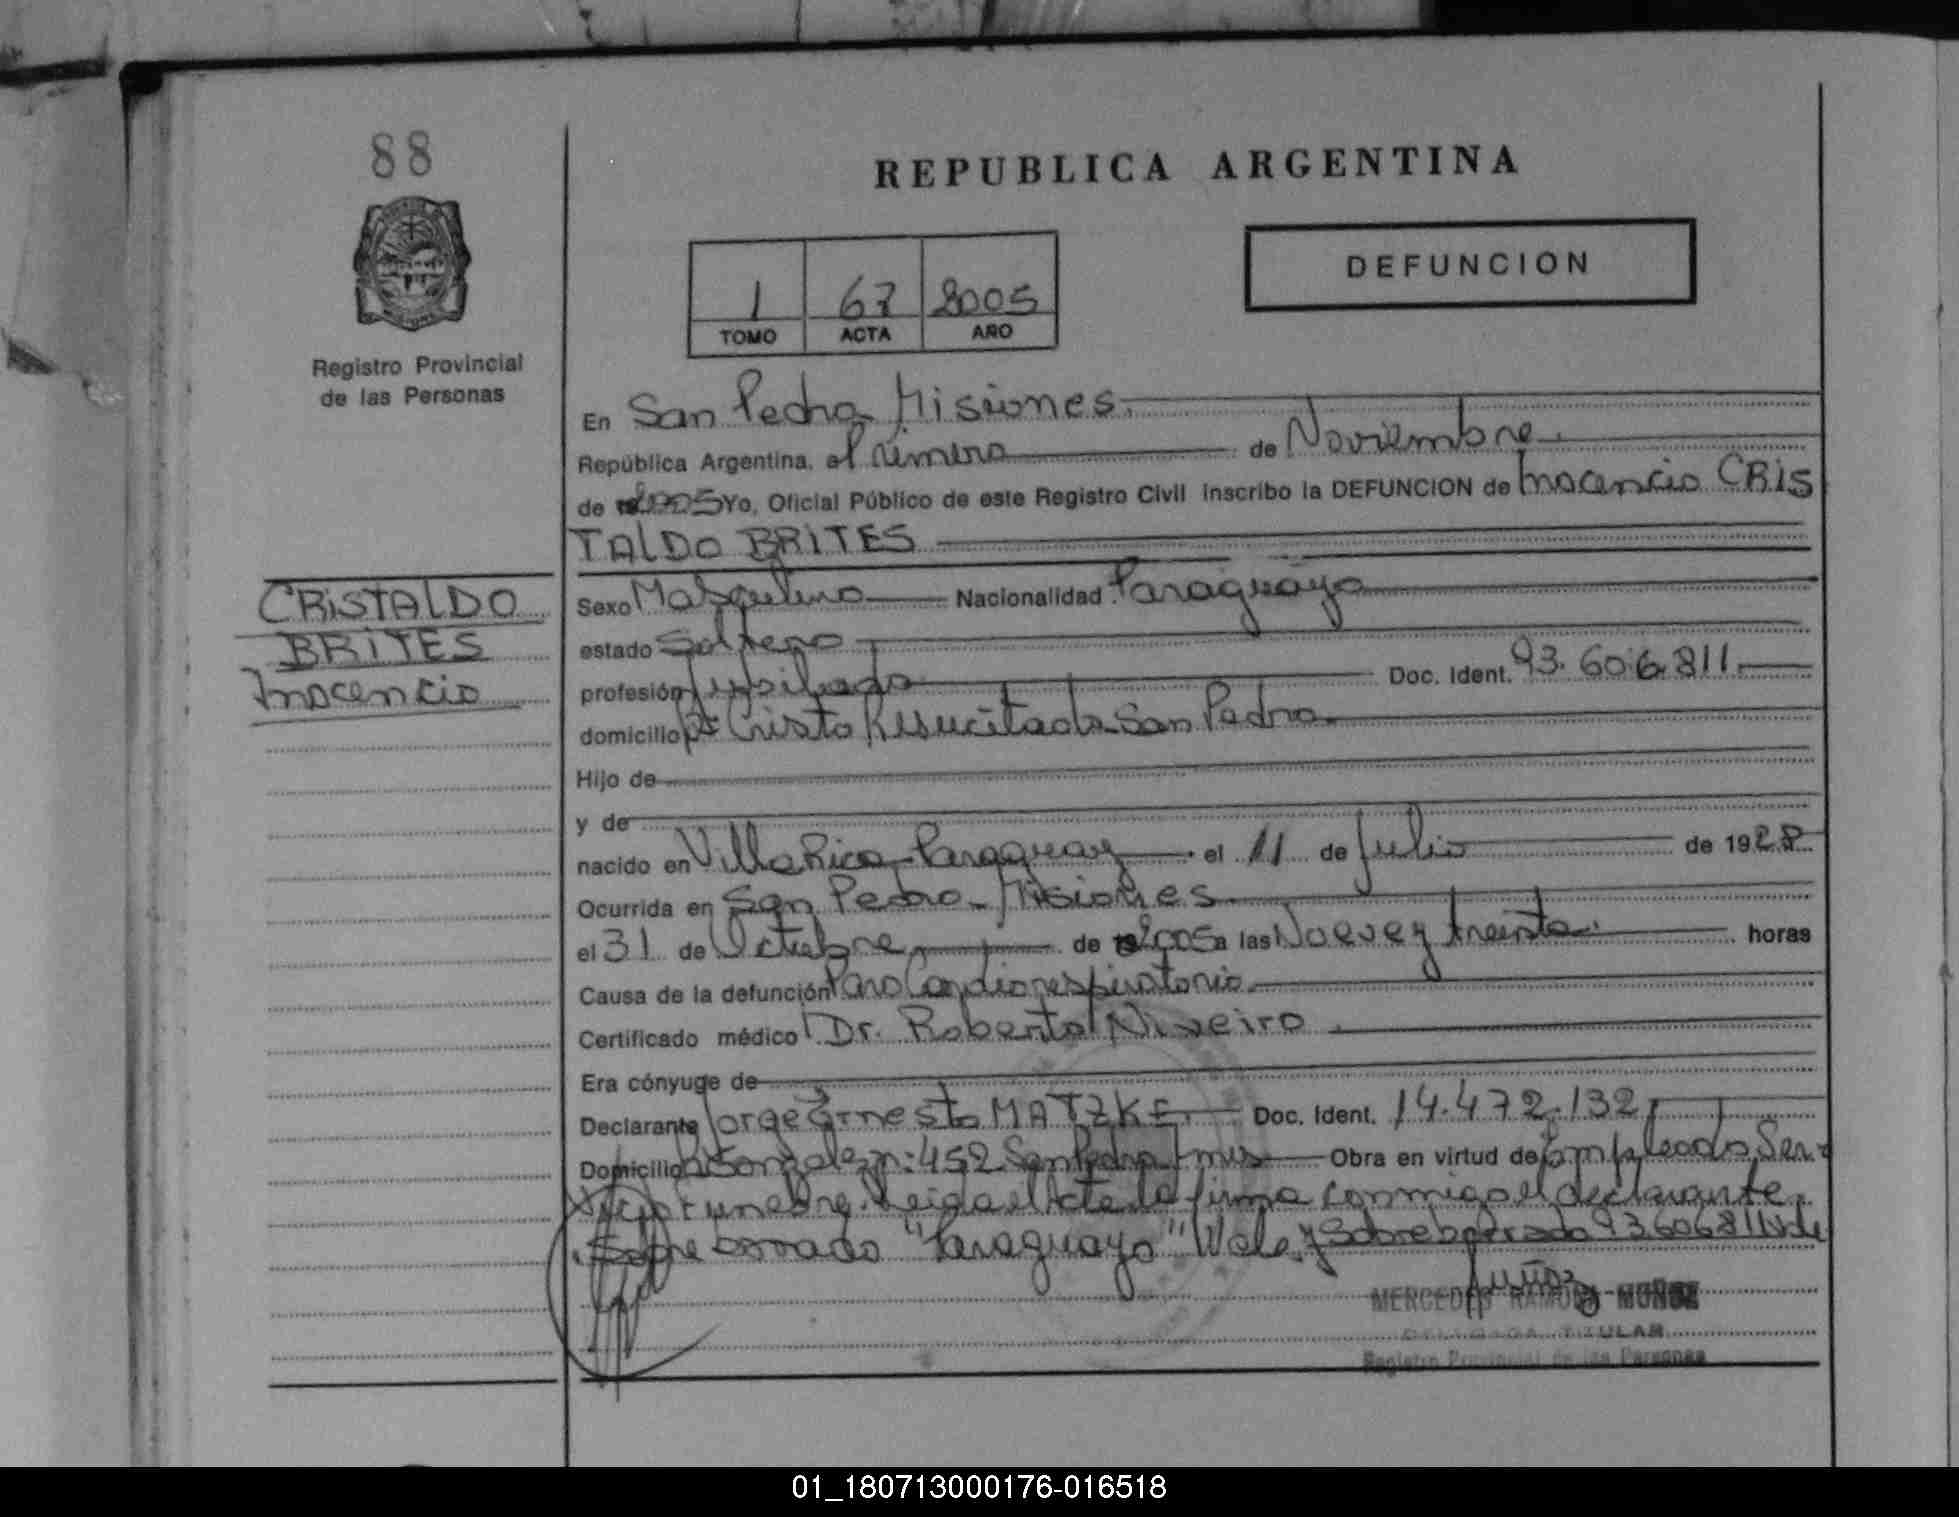 88
REPUBLICA ARGENTINA
DEFUNCION
1 67 2005
TOMO ACTA AÑO
Registro Provincial
de las Personas
En San Pedro Misiones.
República Argentina, el Primero de Noviembre
de 2005 Yo, Oficial Público de este Registro Civil inscribo la DEFUNCION de Inocencio CRIS
TALDO BRITES
CRISTALDO
BRITES
Inocencio
Sexo Masculino Nacionalidad Paraguayo
estado Soltero
profesión Jubilado Doc. Ident. 93.606.811.
domicilio Cristo Resucitado San Pedro.
Hijo de
y de
nacido en Villa Rica Paraguay el 11 de Julio de 1928
Ocurrida en San Pedro - Misiones
el 31 de Octubre de 2005 a las Nueve y treinta horas
Causa de la defunción Paro Cardiorespiratorio
Certificado médico Dr. Roberto Niveiro
Era cónyuge de
Declarante Jorge Ernesto MATZKE. Doc. Ident. 14.472.132
Domicilio Gonzalez n: 452 San Pedro Mnes Obra en virtud de Empleado Ser
vicio Funebre. Leida el Acta la firma conmigo el declarante.
Sobre borrado "Paraguayo" Vale y Sobre borrado 93606811 Vale
MERCEDES RAMONA MUÑOZ
DELEGADA TITULAR
Registro Provincial de las Personas
01_180713000176-016518